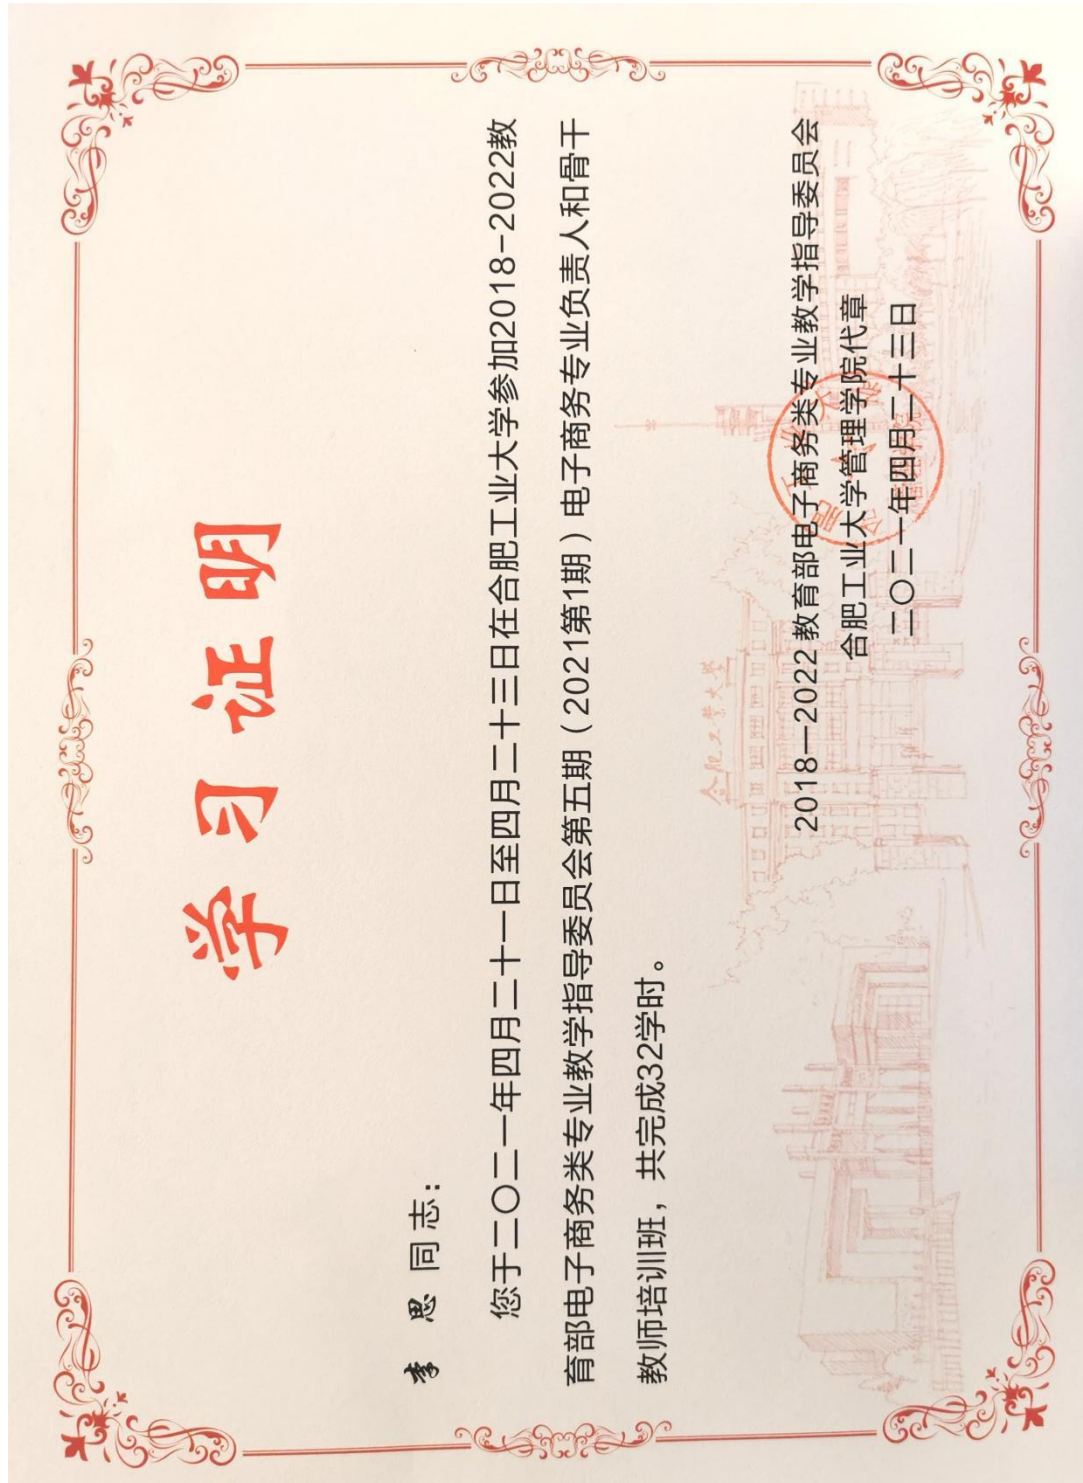 学习证明
李思同志：
您于二〇二一年四月二十一日至四月二十三日在合肥工业大学参加2018-2022教
育部电子商务类专业教学指导委员会第五期（2021第1期）电子商务专业负责人和骨干
教师培训班，共完成32学时。
合肥工业大学
2018—2022教育部电子商务类专业教学指导委员会
合肥工业大学管理学院代章
二〇二一年四月二十三日